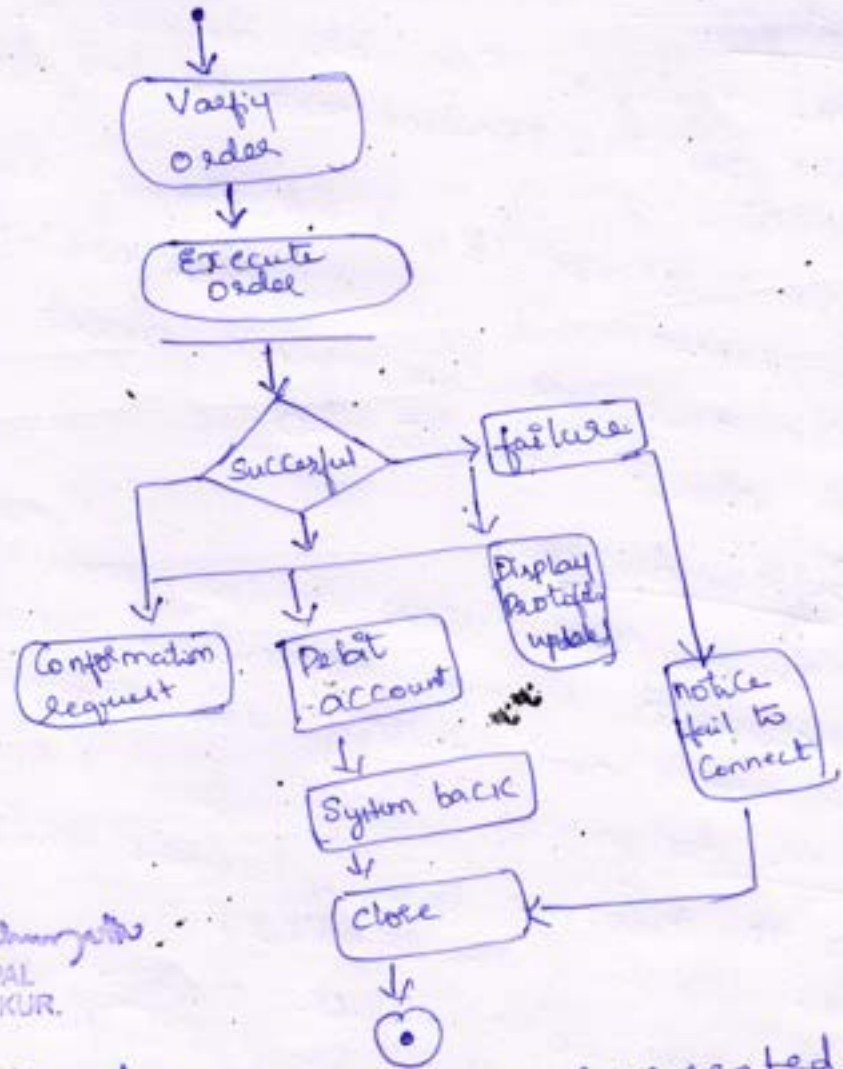 Vaefiy
order
Execute
order
Succesful
failure
Display
update
Conformation
request
Debit
account
notice
fail to
Connect
System back
close
PAL
KUR.